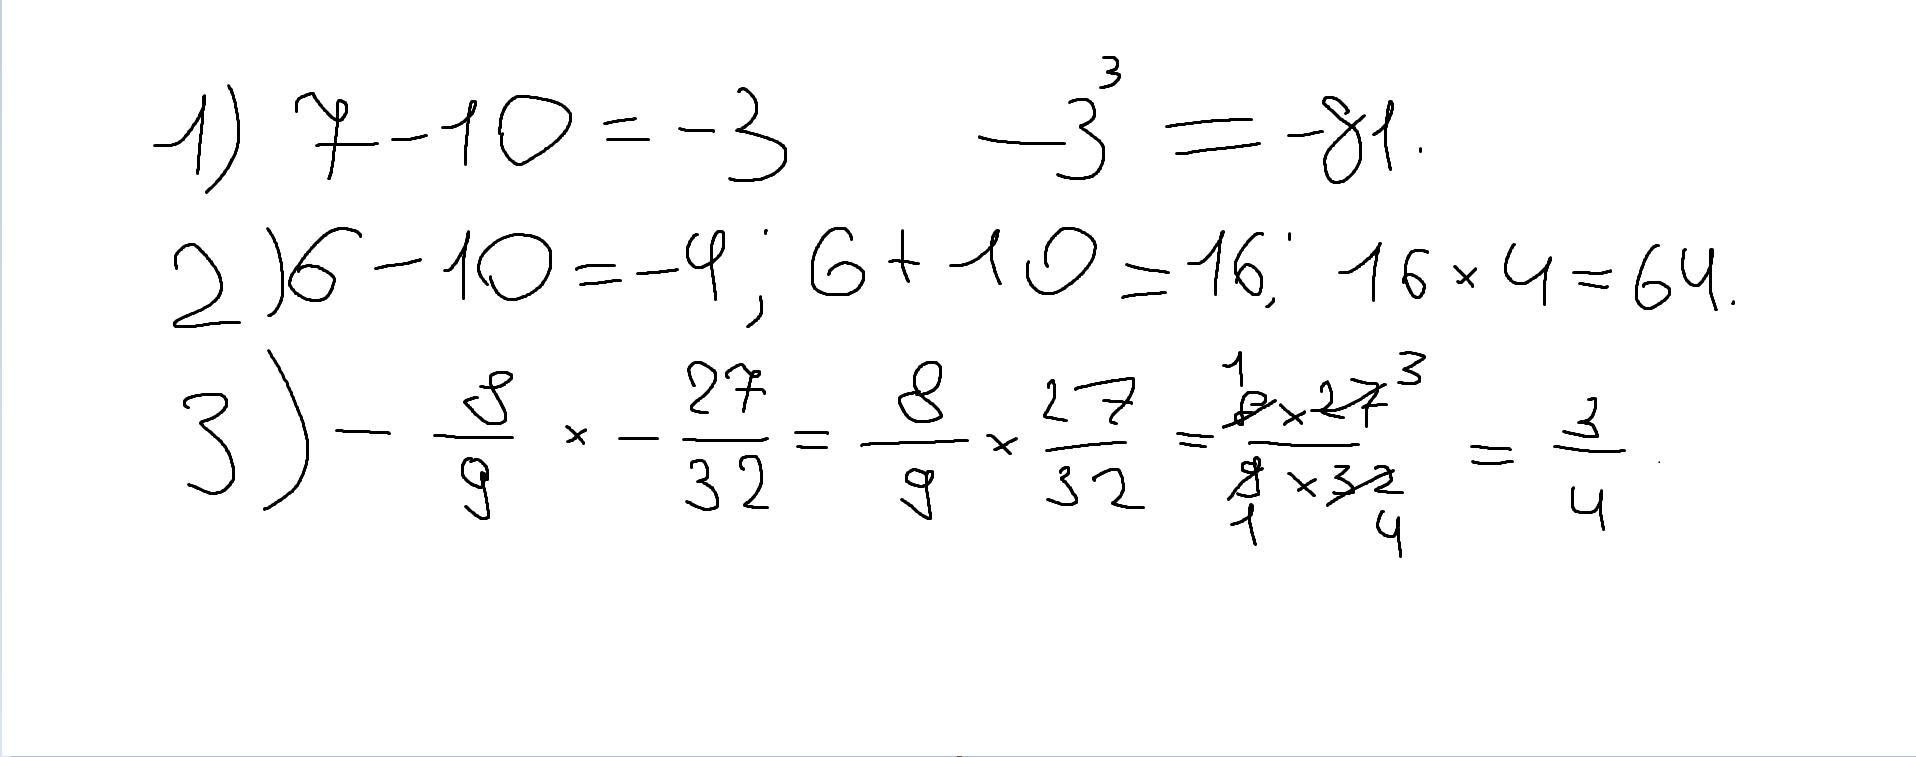 1) 7-10=-3 -3³ = -81.
2) 6-10=-4; 6+10=16; 16×4=64.
3) - 8/9 × - 27/32 = 8/9 × 27/32 = 1 8×27 3 / 9×32 1 4 = 3/4